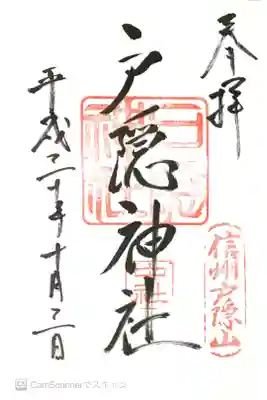 奉拝
信州戸隠山
戸隠神社
中社
平成二十年十月二日
CamScannerでスキャン